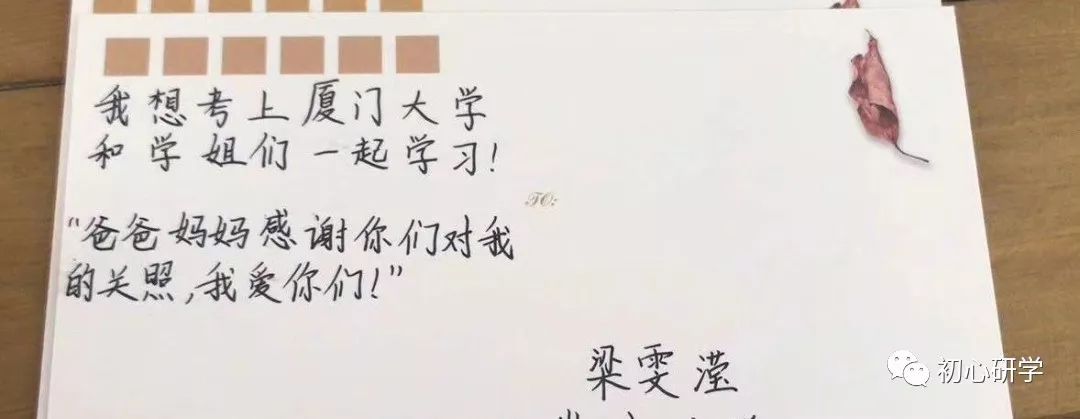 我想考上厦门大学
和学姐们一起学习!
TO:
“爸爸妈妈感谢你们对我
的关照,我爱你们!”
梁雯滢
初心研学